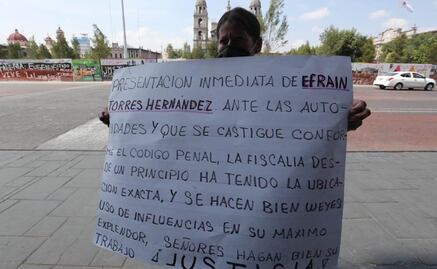 PRESENTACION INMEDIATA DE EFRAIN
TORRES HERNÁNDEZ ANTE LAS AUTO-
IDADES Y QUE SE CASTIGUE CONFOR-
ME EL CODIGO PENAL, LA FISCALIA DES-
DE UN PRINCIPIO HA TENIDO LA UBICA-
CION EXACTA, Y SE HACEN BIEN WEYES
USO DE INFLUENCIAS EN SU MAXIMO
EXPLENDOR, SEÑORES HAGAN BIEN SU
TRABAJO ¡JUSTICIA!